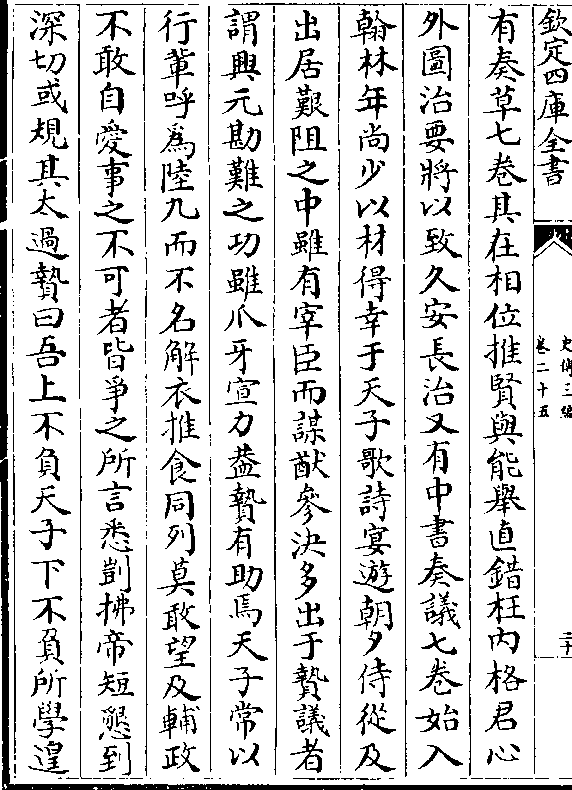 欽定四庫全書
史傳三編
卷二十五
二十
有奏草七卷其在相位推賢與能舉直錯枉內格君心
外圖治要將以致久安長治又有中書奏議七卷始入
翰林年尚少以材得幸于天子歌詩宴遊朝夕侍從及
出居艱阻之中雖有宰臣而謀猷參決多出于贄議者
謂興元勘難之功雖爪牙宣力葢贄有助焉天子常以
行輩呼為陸九而不名解衣推食同列莫敢望及輔政
不敢自愛事之不可者皆爭之所言悉剴拂帝短懇到
深切或規其太過贄曰吾上不負天子下不負所學遑